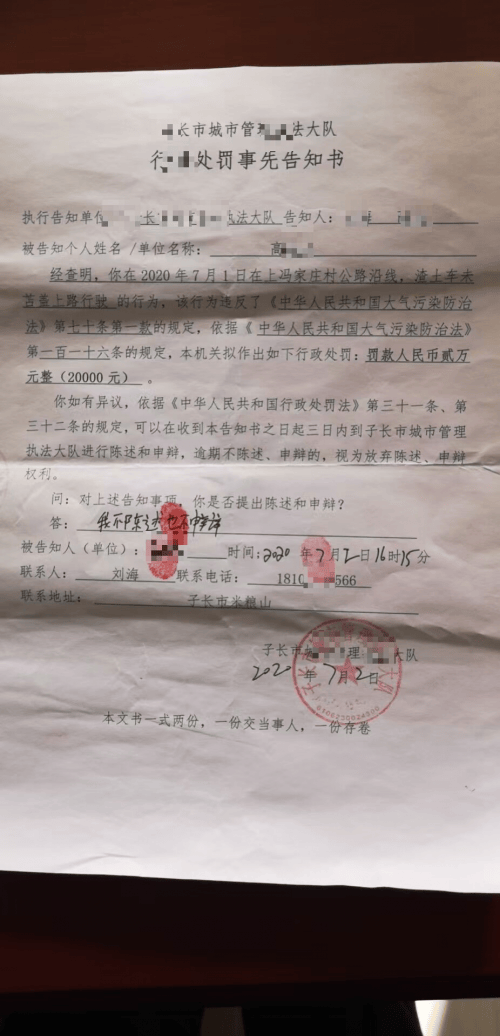 长市城市管理 法大队
行 处罚事先告知书
执行告知单位 长 执法大队 告知人：
被告知个人姓名/单位名称： 高
经查明，你在2020年7月1日在上冯家庄村公路沿线，渣土车未
苫盖上路行驶 的行为，该行为违反了《中华人民共和国大气污染防治
法》第七十条第一款的规定，依据《中华人民共和国大气污染防治法》
第一百一十六条的规定，本机关拟作出如下行政处罚：罚款人民币贰万
元整（20000元）。
你如有异议，依据《中华人民共和国行政处罚法》第三十一条、第
三十二条的规定，可以在收到本告知书之日起三日内到子长市城市管理
执法大队进行陈述和申辩，逾期不陈述、申辩的，视为放弃陈述、申辩
权利。
问：对上述告知事项，你是否提出陈述和申辩？
答： 我不陈述也不申辩
被告知人（单位）： 时间：2020年7月2日16时15分
联系人： 刘海 联系电话： 1810 566
联系地址： 子长市米粮山
子长市城 理 大队
2020年7月2日
本文书一式两份，一份交当事人，一份存卷